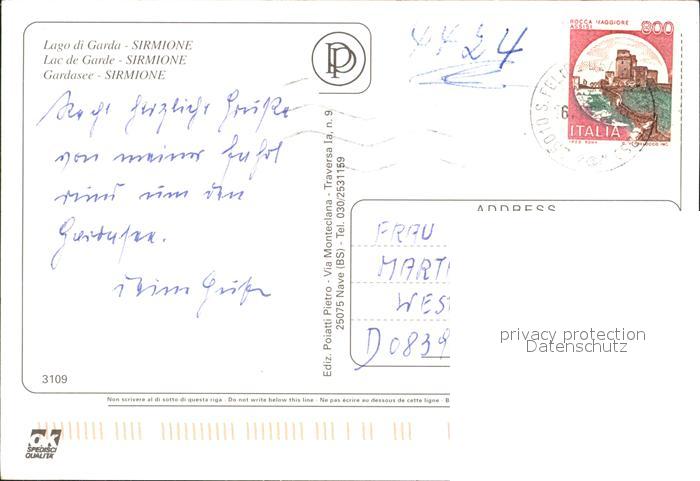 Lago di Garda - SIRMIONE
Lac de Garde - SIRMIONE
Gardasee - SIRMIONE
PP
24
ROCCA MAGGIORE
ASSISI
800
ITALIA
Recht herzliche Grüße
von meiner Fahrt
rund um den
Gardasee.
3109
Ediz. Poiatti Pietro - Via Monteclana - Traversa Ia, n. 9
25075 Nave (BS) - Tel. 030/2531159
ADDRESS
FRAU
MARTI
WES
D0839
privacy protection
Datenschutz
Non scrivere al di sotto di questa riga - Do not write below this line - Ne pas écrire au dessous de cette ligne - B
ok
SPEDISCI
QUALITÀ